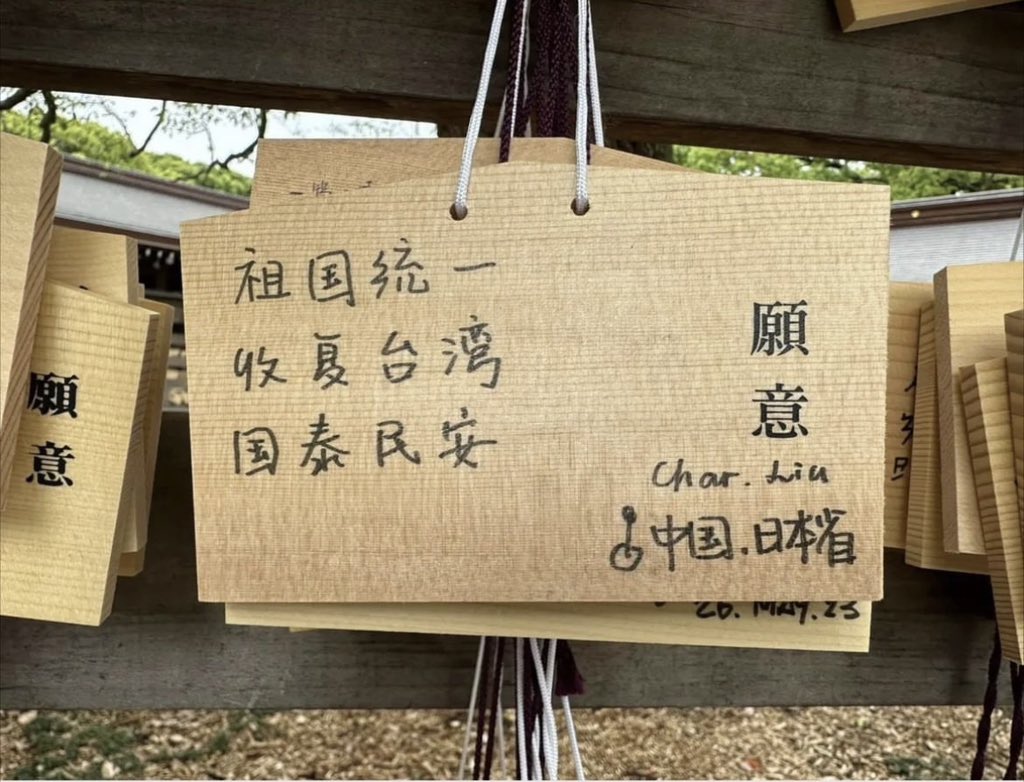 祖国统一
收复台湾
国泰民安
願
意
Char. Liu
中国.日本省
26. MAY. 23
願
意